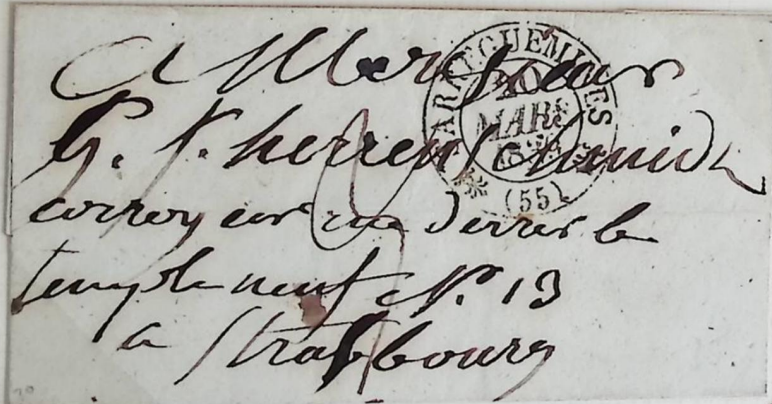 A Monsieur
G. F. herrenschmidt
corroyeur rue derrier le
temple neuf N. 13
a Strasbourg
SARREGUEMINES
20
MARS
(55)